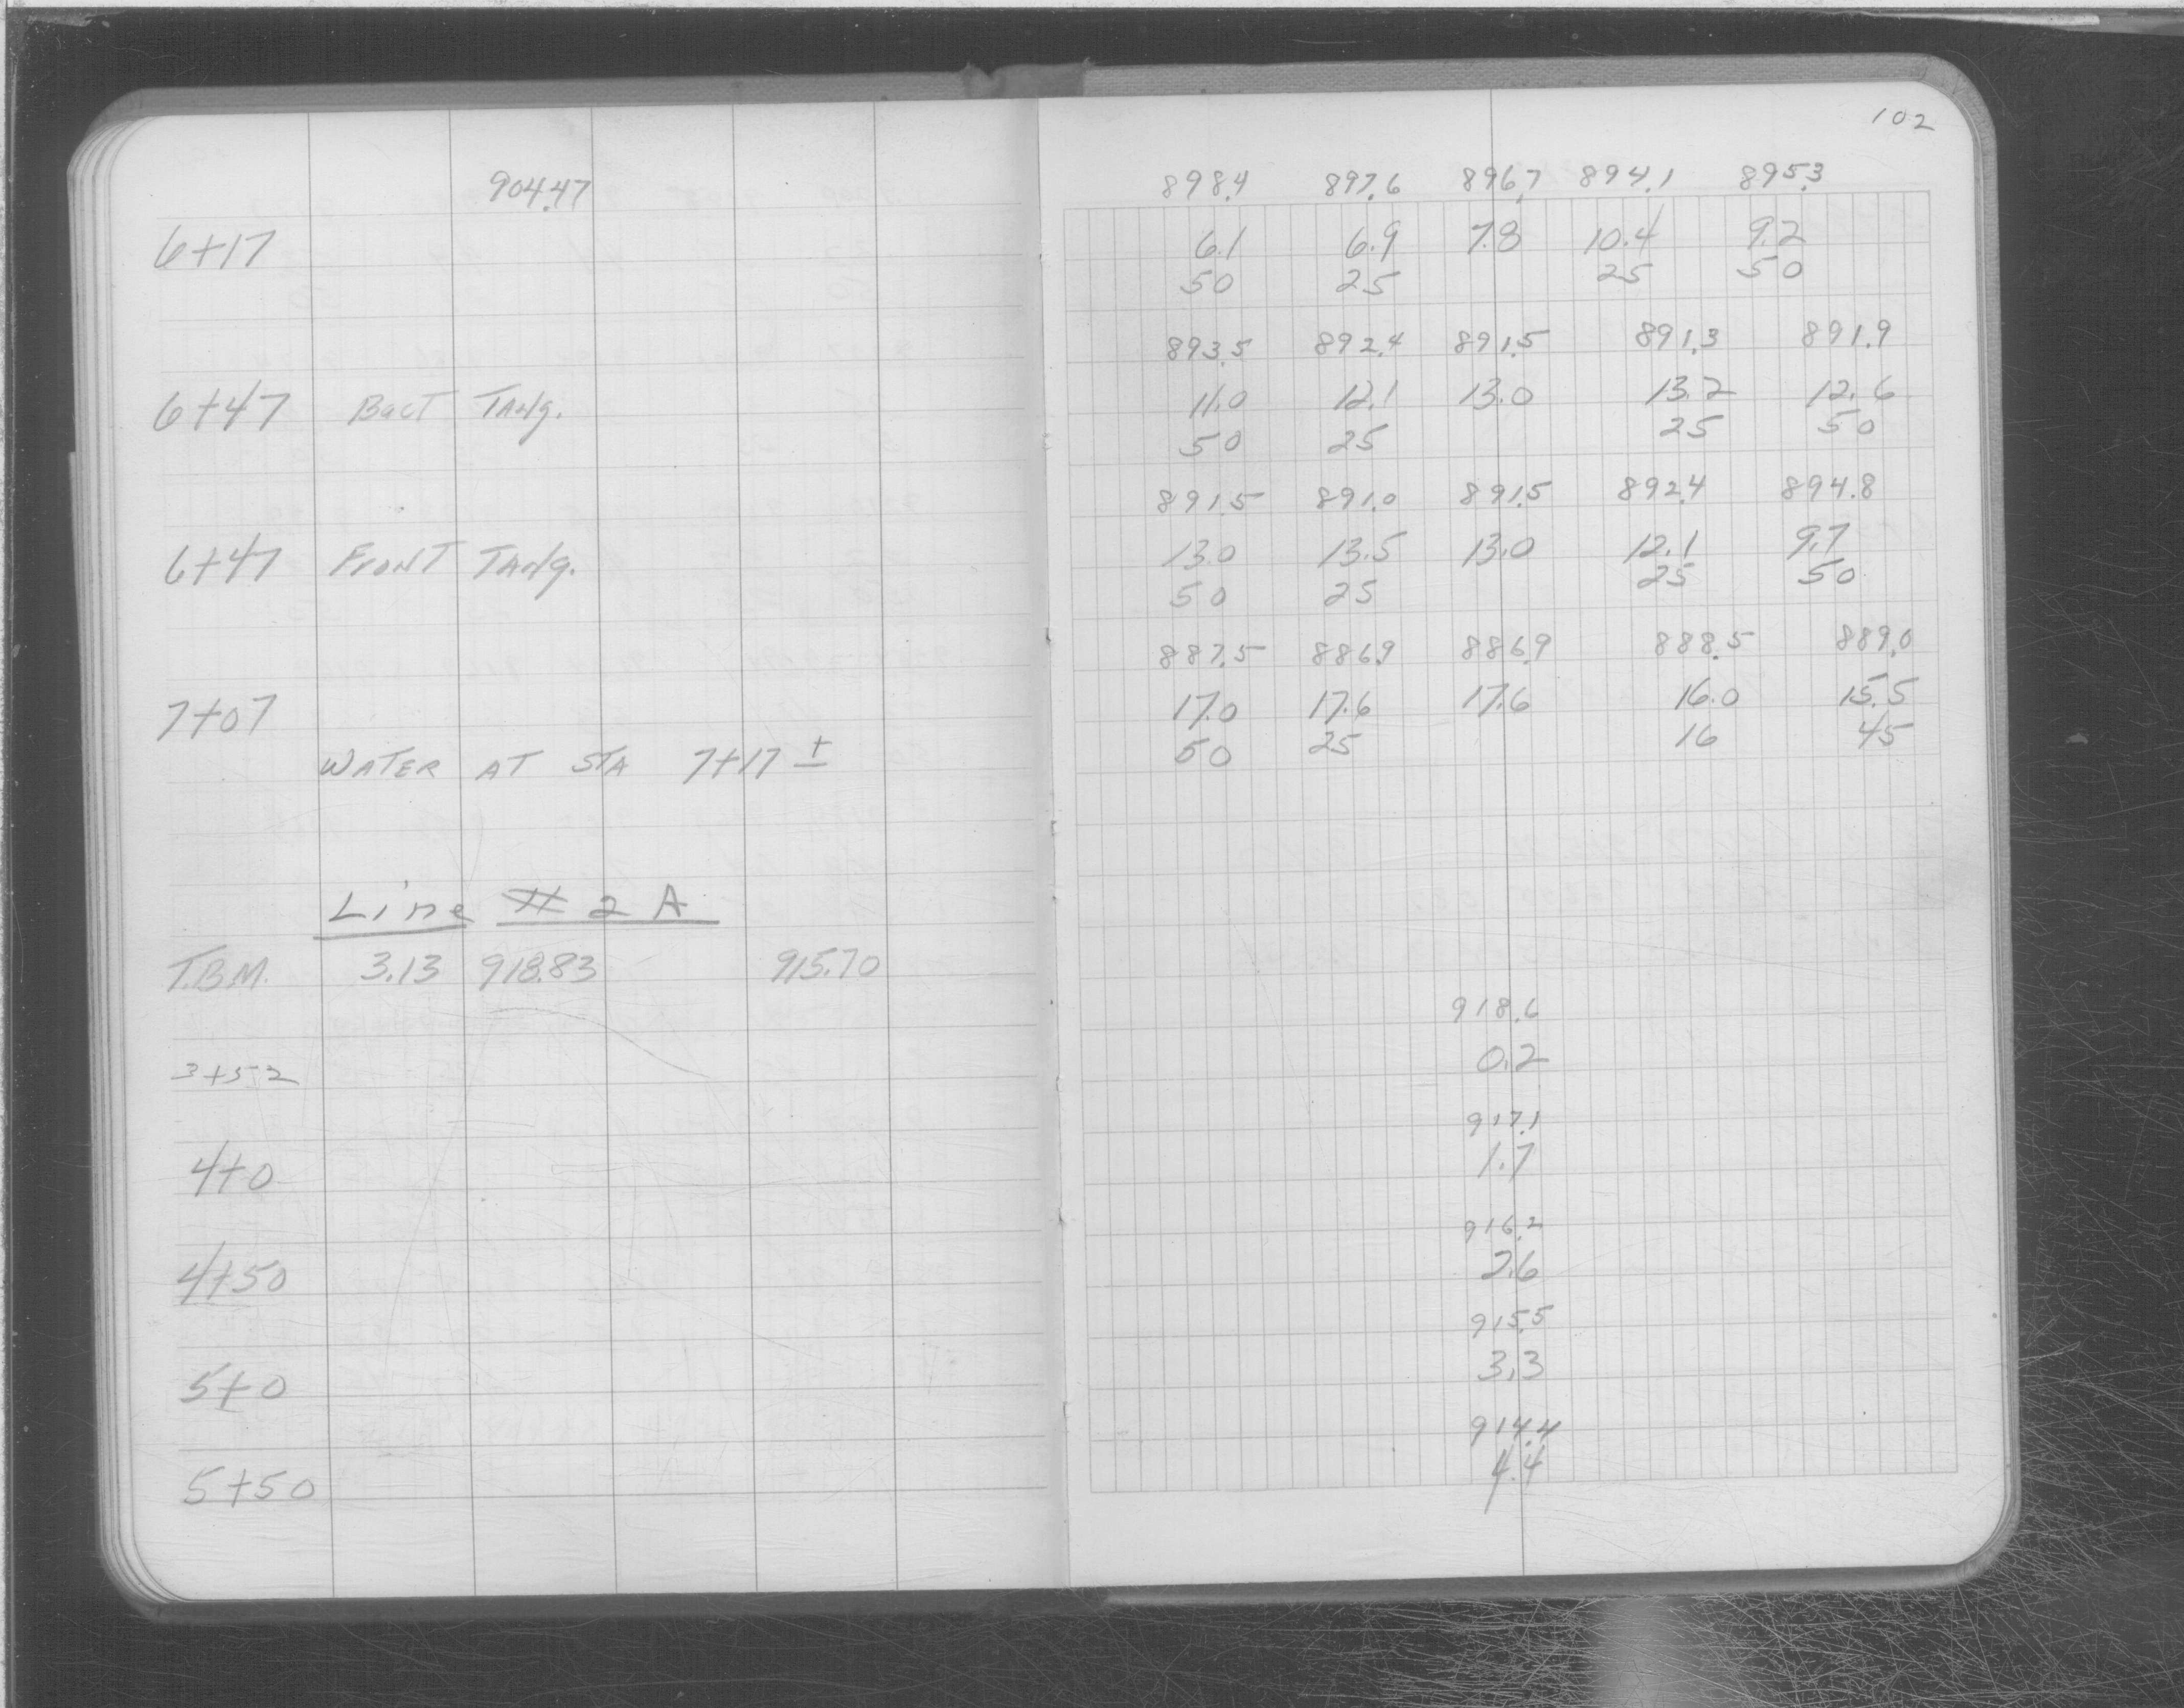 102
904.47 898.4 897.6 896.7 894.1 895.3
6+17 6.1 6.9 7.8 10.4 9.2
50 25 25 50
893.5 892.4 891.5 891.3 891.9
6+47 Bact Tang. 11.0 12.1 13.0 13.2 12.6
50 25 25 50
891.5 891.0 891.5 892.4 894.8
6+47 Front Tang. 13.0 13.5 13.0 12.1 9.7
50 25 25 50
887.5 886.9 886.9 888.5 889.0
7+07 17.0 17.6 17.6 16.0 15.5
50 25 16 45
WATER AT STA 7+17 ±
Line # 2 A
T.B.M. 3.13 918.83 915.70
918.6
3+52 0.2
917.1
4+0 1.7
916.2
4+50 2.6
915.5
5+0 3.3
914.4
5+50 4.4